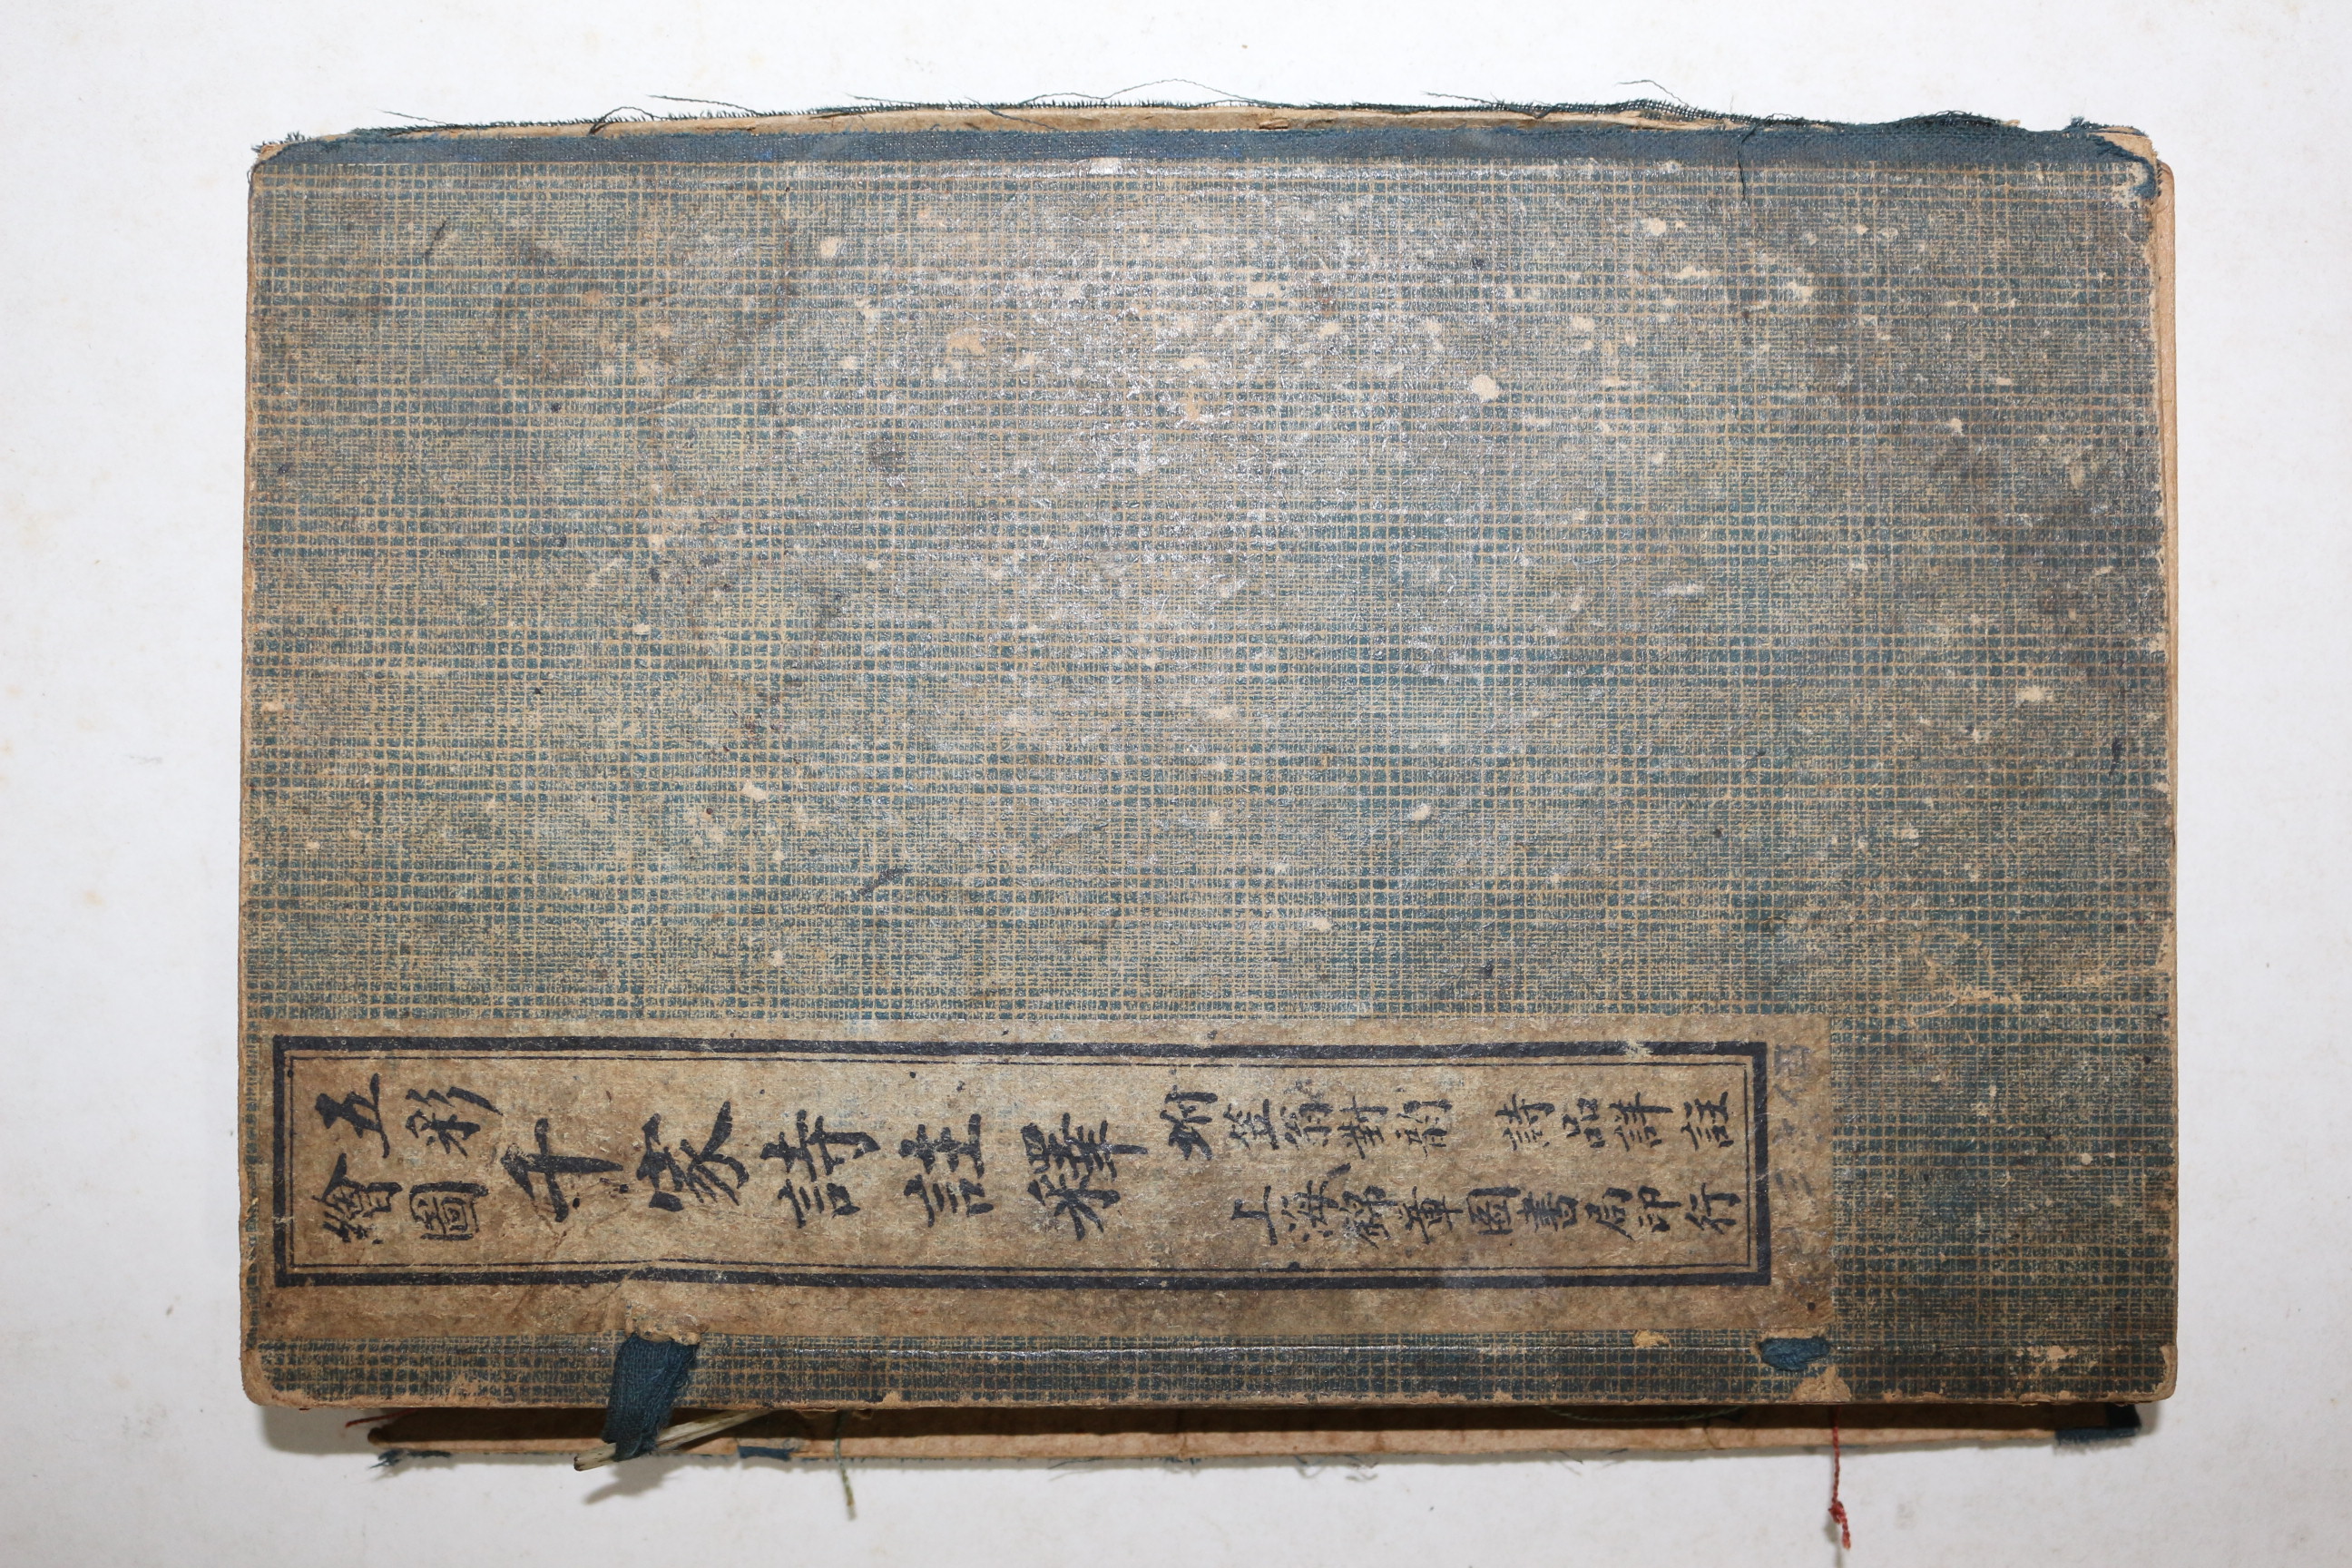 五彩
繪圖
千家詩註釋
坿笠翁對韵 詩品詳註
上海錦章圖書局印行